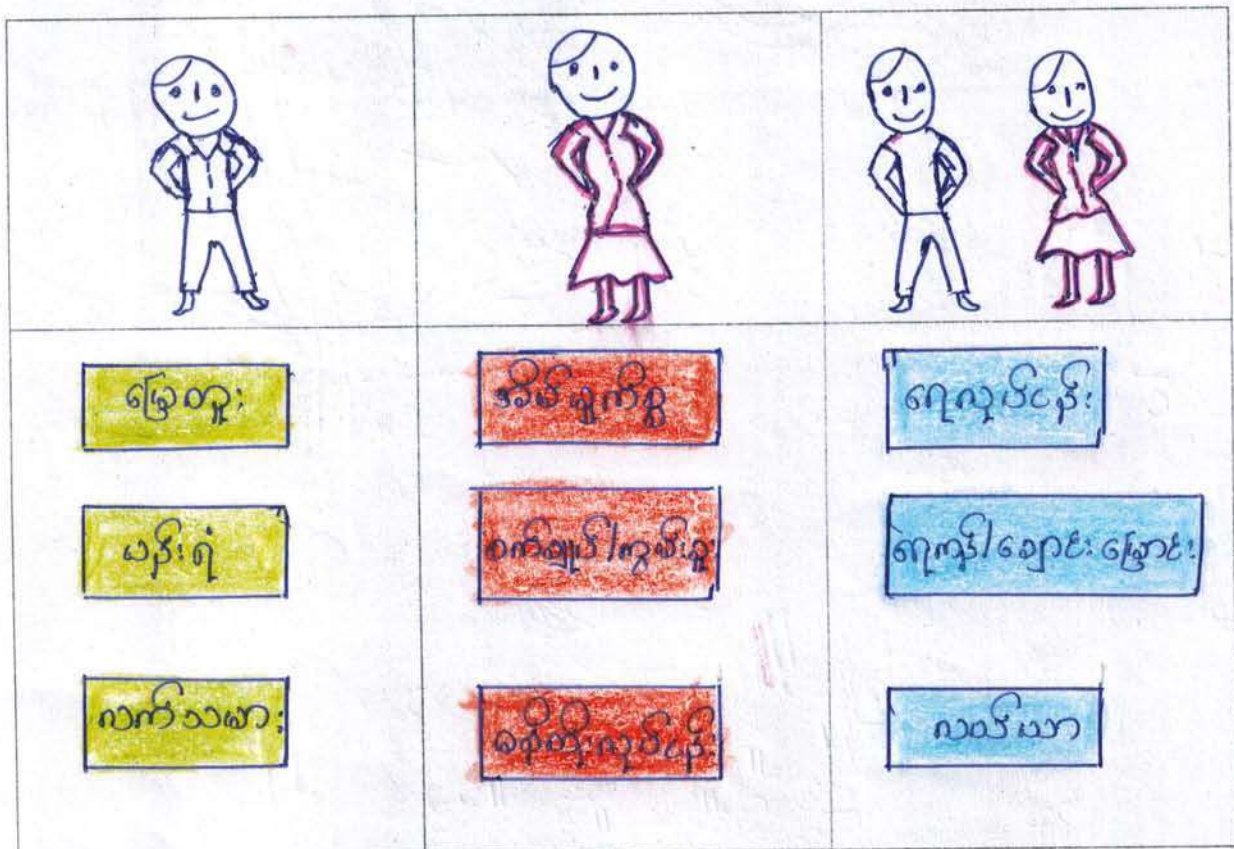 မြေတူး
ပန်းရံ
လက်သမား
အိမ်မှုကိစ္စ
စက်ချုပ်/ကွမ်းယူ
မုန့်တိုလုပ်ငန်း
ရေလုပ်ငန်း
ရေကန်/ချောင်းမြောင်း
လယ်ယာ